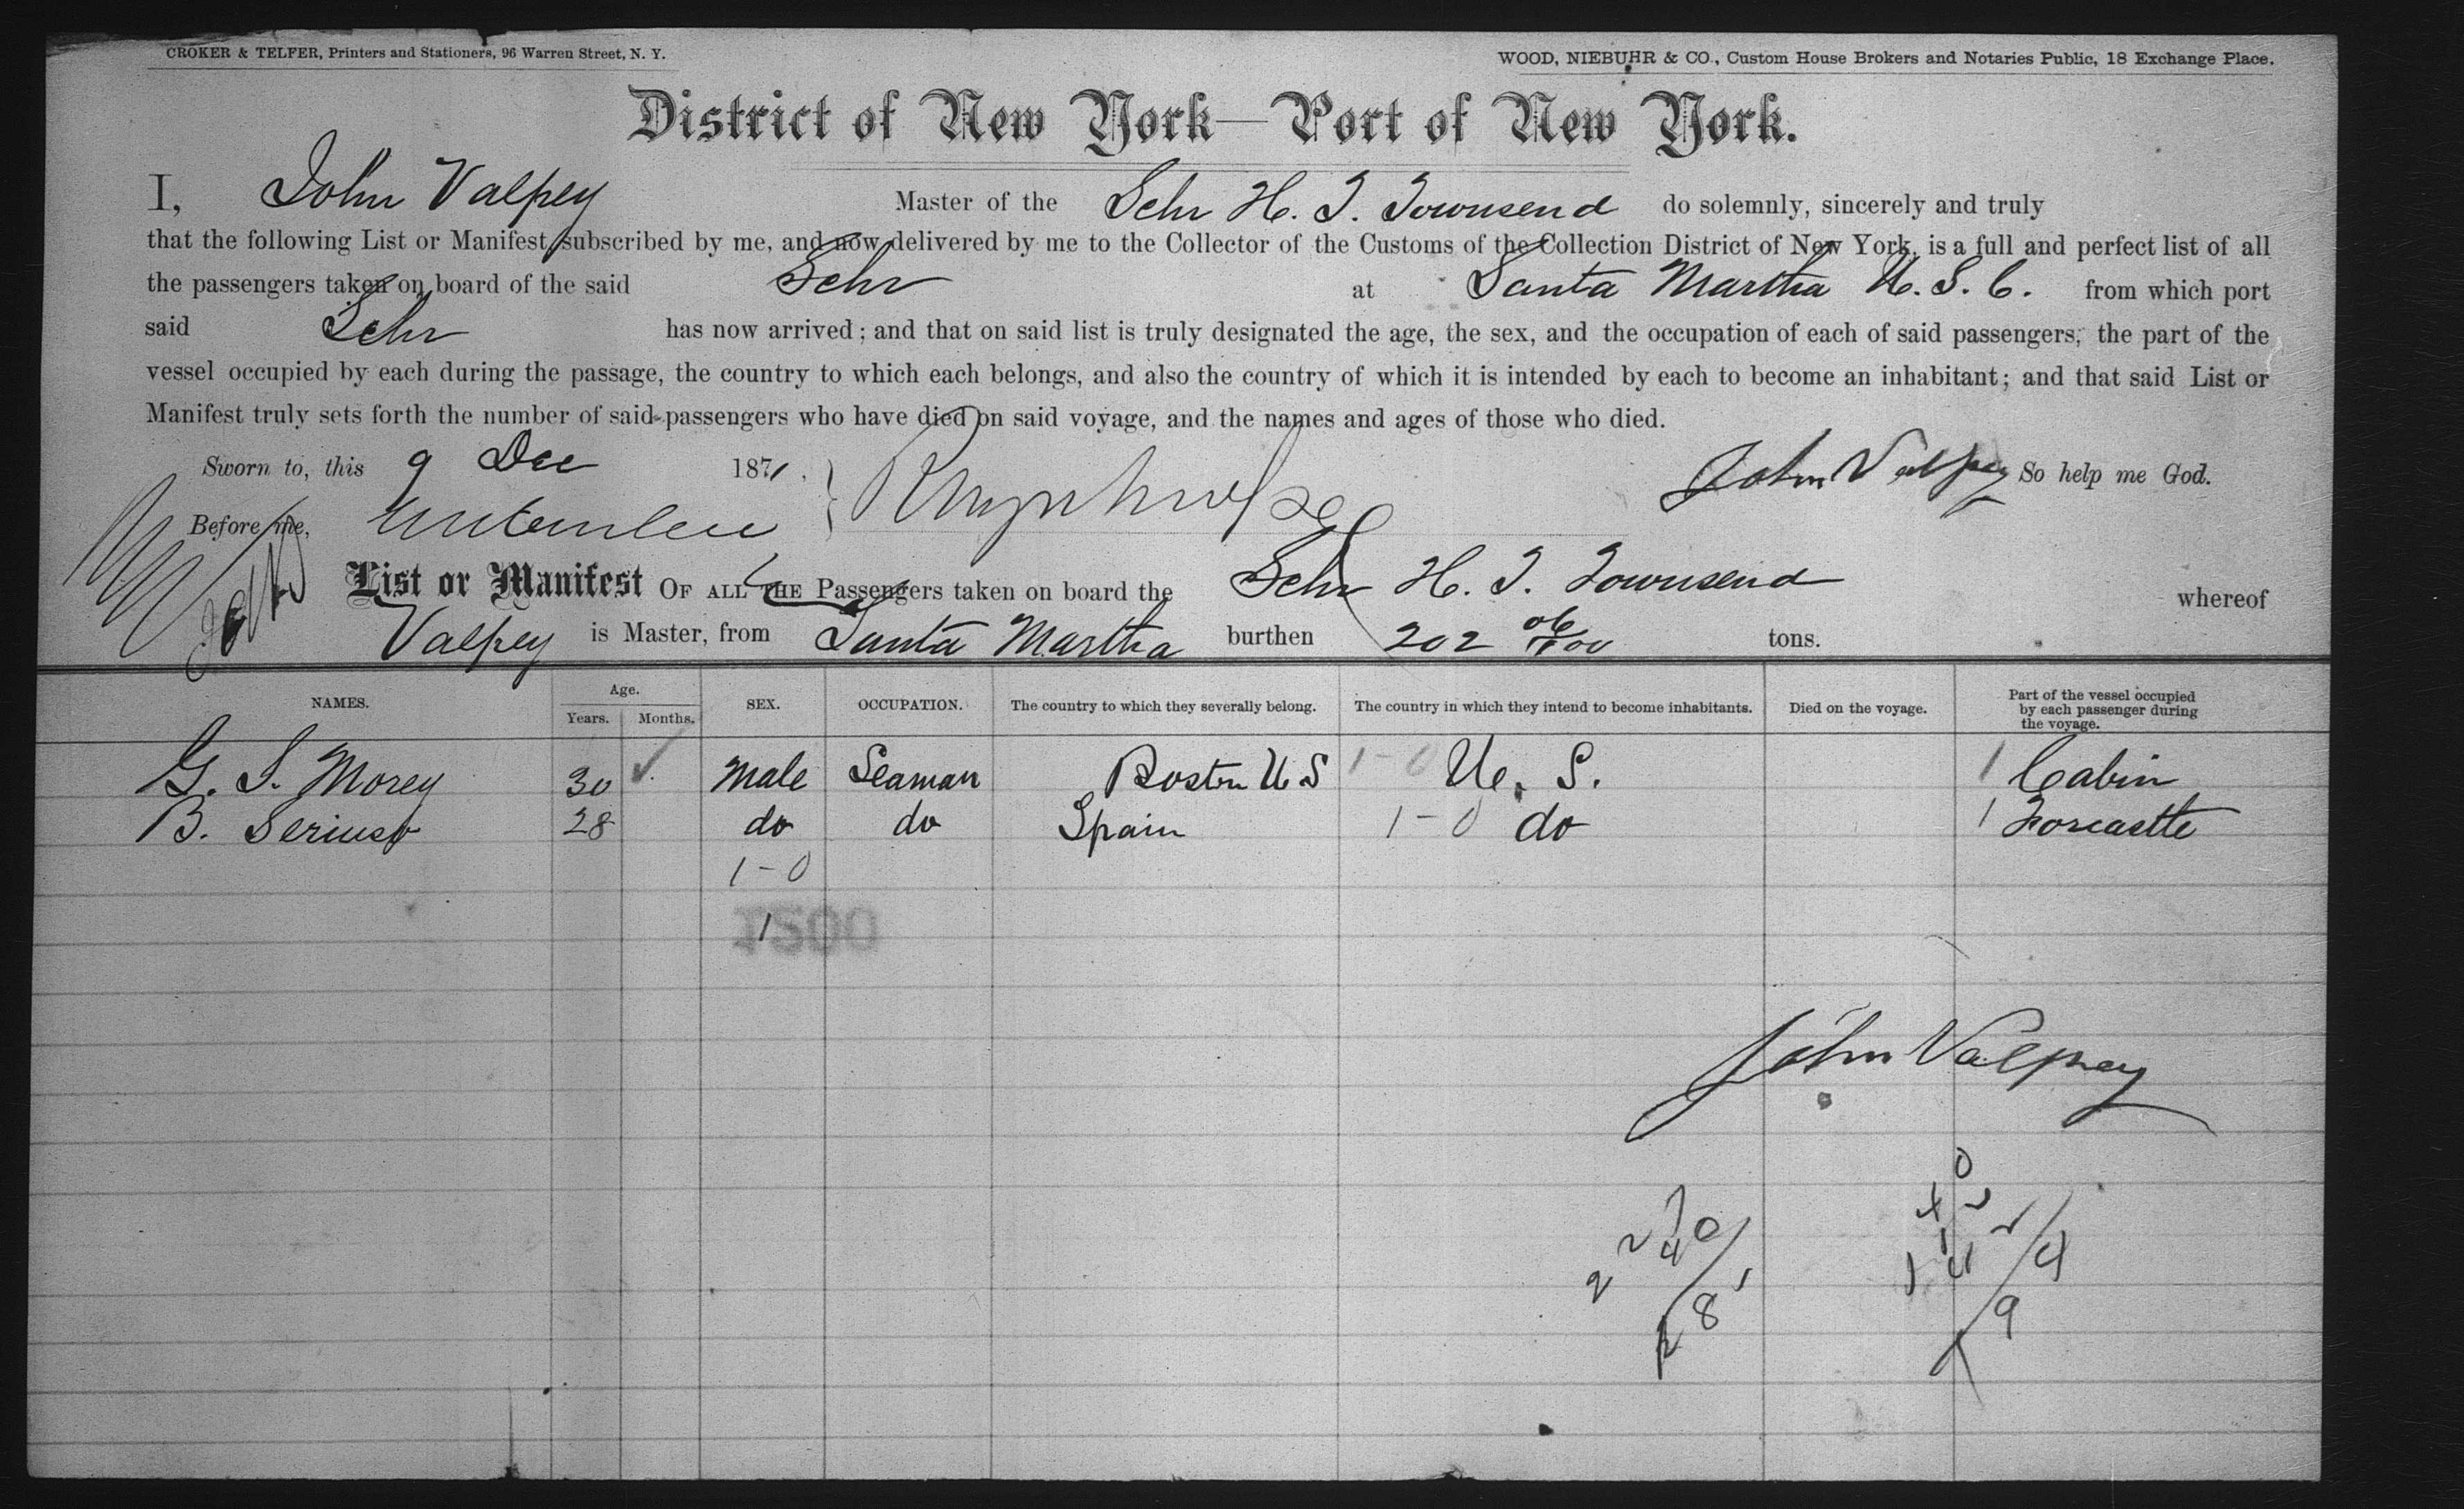 CROKER & TELFER, Printers and Stationers, 96 Warren Street, N. Y.
WOOD, NIEBUHR & CO., Custom House Brokers and Notaries Public, 18 Exchange Place.
District of New York—Port of New York.
I, John Valpey Master of the Schr H. T. Townsend do solemnly, sincerely and truly
that the following List or Manifest, subscribed by me, and now delivered by me to the Collector of the Customs of the Collection District of New York, is a full and perfect list of all
the passengers taken on board of the said Schr at Santa Martha U. S. C. from which port
said Schr has now arrived; and that on said list is truly designated the age, the sex, and the occupation of each of said passengers, the part of the
vessel occupied by each during the passage, the country to which each belongs, and also the country of which it is intended by each to become an inhabitant; and that said List or
Manifest truly sets forth the number of said passengers who have died on said voyage, and the names and ages of those who died.
Sworn to, this 9 Dec 1871. John Valpey So help me God.
Before me,
List or Manifest OF ALL THE Passengers taken on board the Schr H. T. Townsend whereof
Valpey is Master, from Santa Martha burthen 202 06/100 tons.
NAMES. Age. Years. Months. SEX. OCCUPATION. The country to which they severally belong. The country in which they intend to become inhabitants. Died on the voyage. Part of the vessel occupied by each passenger during the voyage.
G. S. Morey 30 ✓ Male Seaman Boston U S 1-0 U. S. 1 Cabin
B. 28 do do Spain 1-0 do 1 Forcastle
1-0
1
John Valpey